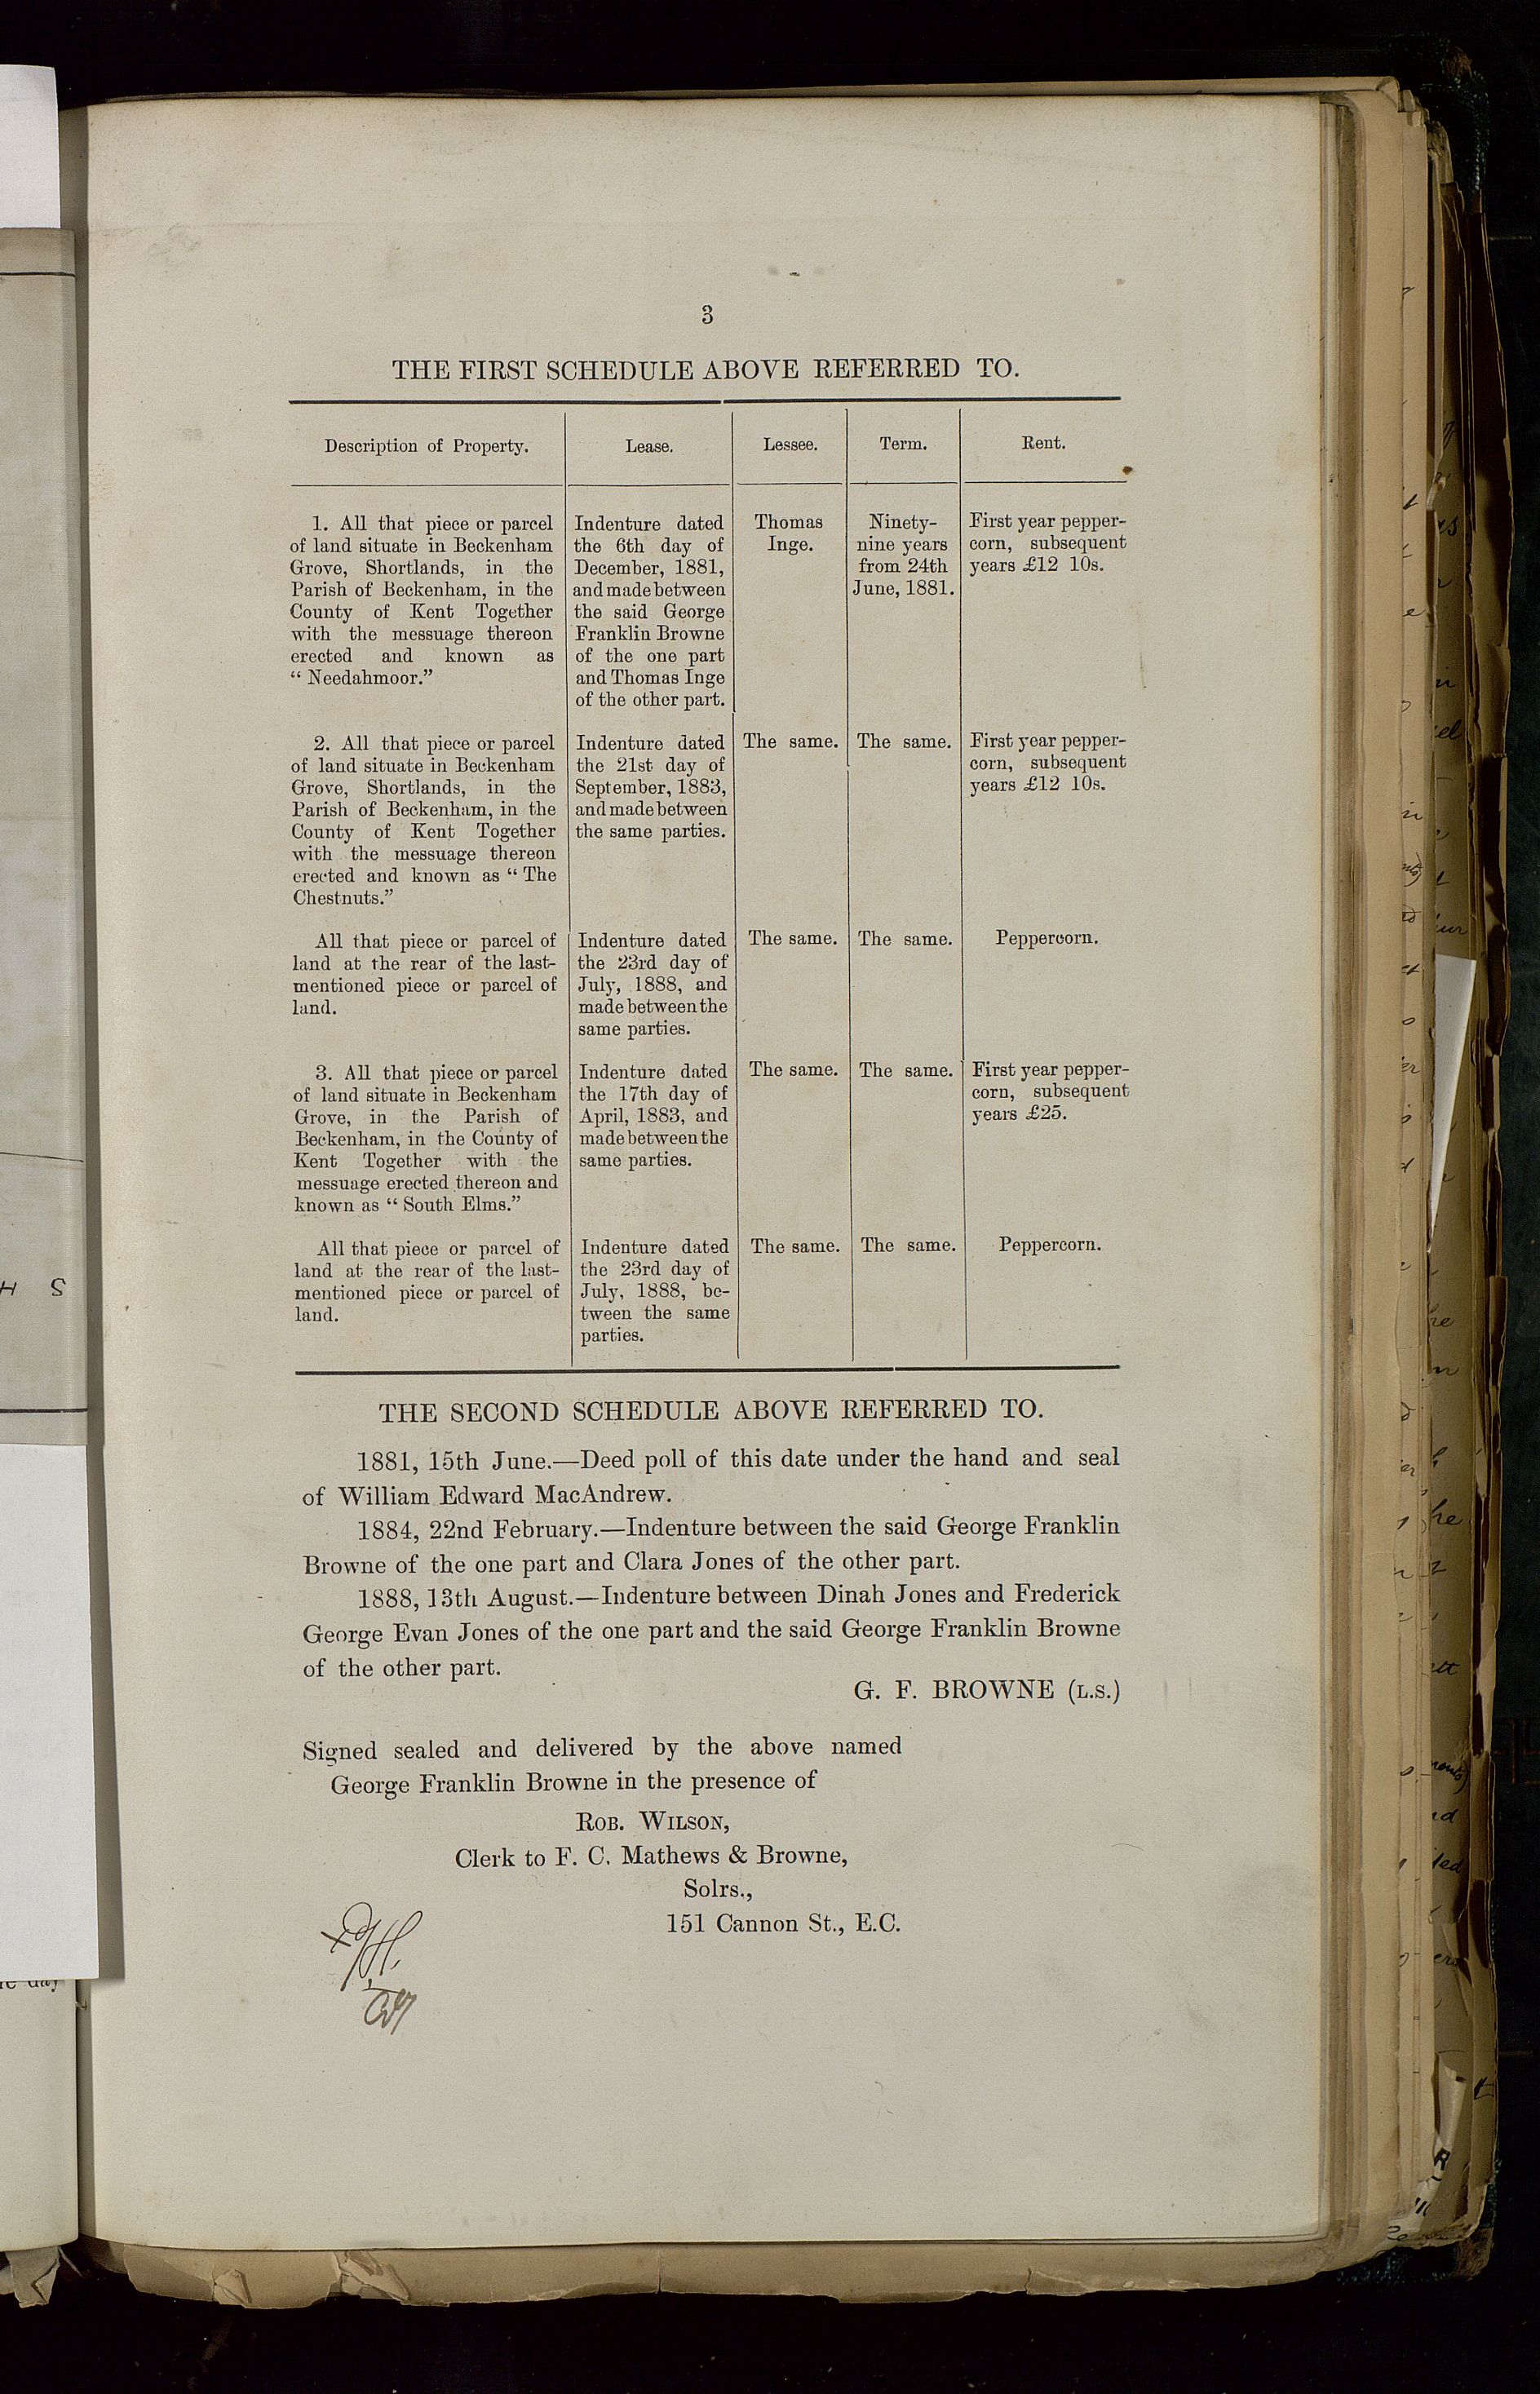 3
THE FIRST SCHEDULE ABOVE REFERRED TO.
Description of Property.
Lease.
Lessee.
Term.
Rent.
1. All that piece or parcel
of land situate in Beckenham
Grove, Shortlands, in the
Parish of Beckenham, in the
County of Kent Together
with the messuage thereon
erected and known as
“ Needahmoor.”
Indenture dated
the 6th day of
December, 1881,
and made between
the said George
Franklin Browne
of the one part
and Thomas Inge
of the other part.
Thomas
Inge.
Ninety-
nine years
from 24th
June, 1881.
First year pepper-
corn, subsequent
years £12 10s.
2. All that piece or parcel
of land situate in Beckenham
Grove, Shortlands, in the
Parish of Beckenham, in the
County of Kent Together
with the messuage thereon
erected and known as “ The
Chestnuts.”
Indenture dated
the 21st day of
September, 1883,
and made between
the same parties.
The same.
The same.
First year pepper-
corn, subsequent
years £12 10s.
All that piece or parcel of
land at the rear of the last-
mentioned piece or parcel of
land.
Indenture dated
the 23rd day of
July, 1888, and
made between the
same parties.
The same.
The same.
Peppercorn.
3. All that piece or parcel
of land situate in Beckenham
Grove, in the Parish of
Beckenham, in the County of
Kent Together with the
messuage erected thereon and
known as “ South Elms.”
Indenture dated
the 17th day of
April, 1883, and
made between the
same parties.
The same.
The same.
First year pepper-
corn, subsequent
years £25.
All that piece or parcel of
land at the rear of the last-
mentioned piece or parcel of
land.
Indenture dated
the 23rd day of
July, 1888, be-
tween the same
parties.
The same.
The same.
Peppercorn.
THE SECOND SCHEDULE ABOVE REFERRED TO.
1881, 15th June.—Deed poll of this date under the hand and seal
of William Edward MacAndrew.
1884, 22nd February.—Indenture between the said George Franklin
Browne of the one part and Clara Jones of the other part.
1888, 13th August.—Indenture between Dinah Jones and Frederick
George Evan Jones of the one part and the said George Franklin Browne
of the other part.
G. F. BROWNE (L.S.)
Signed sealed and delivered by the above named
George Franklin Browne in the presence of
ROB. WILSON,
Clerk to F. C. Mathews & Browne,
Solrs.,
151 Cannon St., E.C.